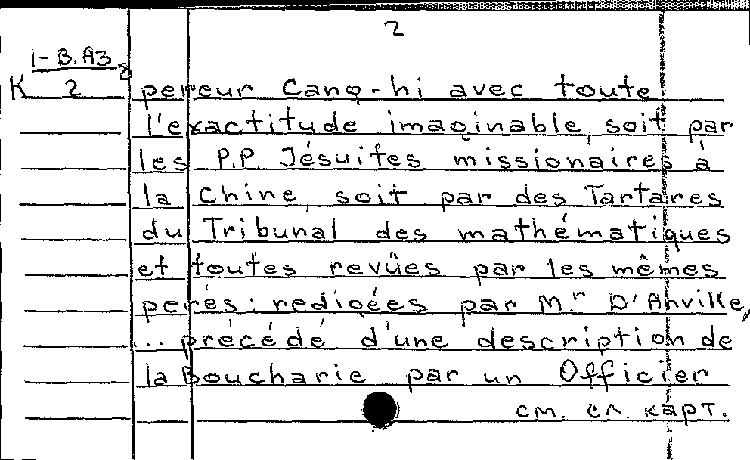 2
1-B.A3
K 2
pereur Cang-hi avec toute
l'exactitude imaginable, soit par
les P.P. Jésuites missionaires à
la Chine, soit par des Tartares
du Tribunal des mathématiques
et toutes revûes par les mêmes
perès: redigées par Mr D'Anville,
... précédé d'une description de
la Boucharie par un Officier
см. сл. карт.